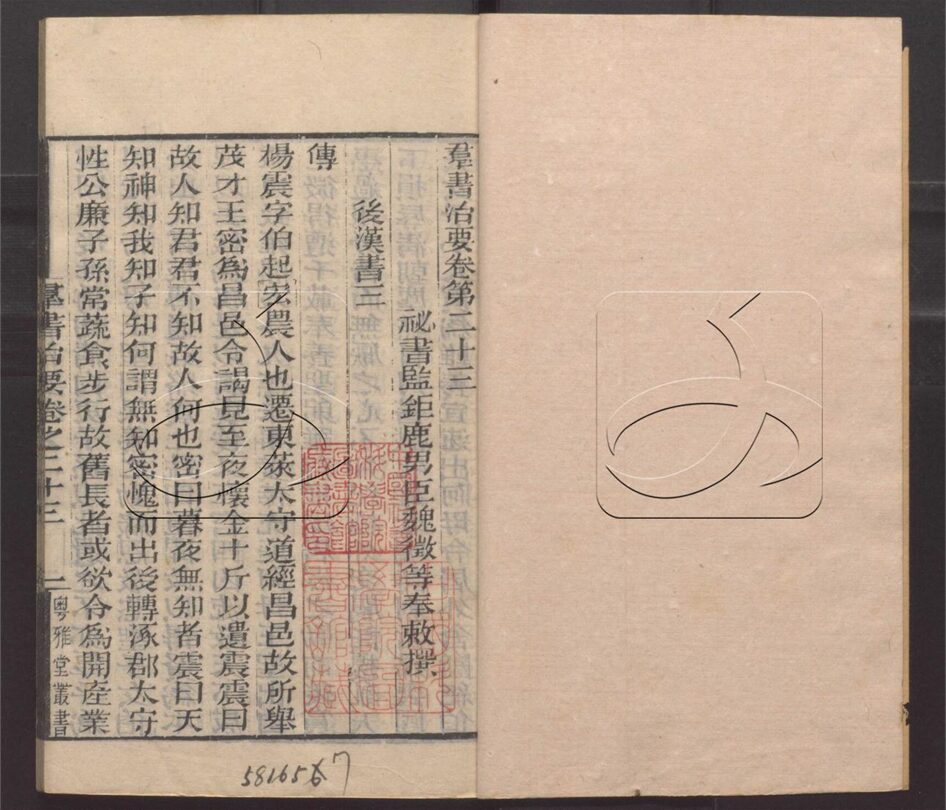 羣書治要卷第二十三
祕書監鉅鹿男臣魏徵等奉敕撰
後漢書三
傳
楊震字伯起宏農人也遷東萊太守道經昌邑故所舉
茂才王密爲昌邑令謁見至夜懷金十斤以遺震震曰
故人知君君不知故人何也密曰暮夜無知者震曰天
知神知我知子知何謂無知密愧而出後轉涿郡太守
性公廉子孫常蔬食步行故舊長者或欲令爲開産業
羣書治要卷之二十三 一 粵雅堂叢書